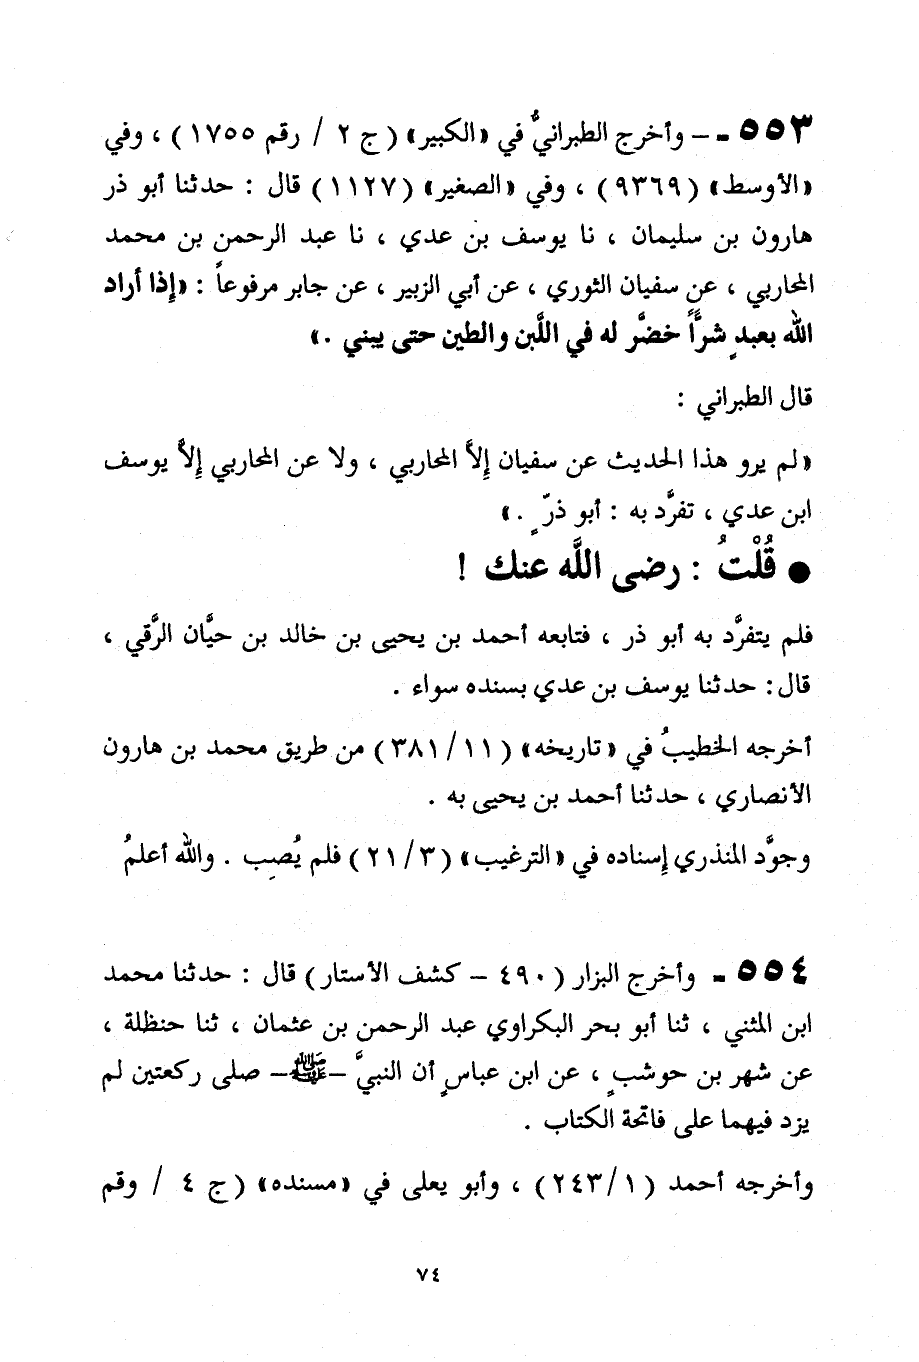 ٥٥٣ ـ – وأخرج الطبرانيُّ في «الكبير» (ج ٢ / رقم ١٧٥٥) ، وفي
«الأوسط» (٩٣٦٩) ، وفي «الصغير» (١١٢٧) قال : حدثنا أبو ذر
هارون بن سليمان ، نا يوسف بن عدي ، نا عبد الرحمن بن محمد
المحاربي ، عن سفيان الثوري ، عن أبي الزبير ، عن جابر مرفوعاً : «إذا أراد
الله بعبدٍ شرًّا خضَّر له في اللَّبن والطين حتى يبني .»
قال الطبراني :
«لم يرو هذا الحديث عن سفيان إلاَّ المحاربي ، ولا عن المحاربي إلاَّ يوسف
ابن عدي ، تفرَّد به : أبو ذرٍّ .»
● قُلْتُ : رضى اللَّه عنك !
فلم يتفرَّد به أبو ذر ، فتابعه أحمد بن يحيى بن خالد بن حيَّان الرَّقي ،
قال : حدثنا يوسف بن عدي بسنده سواء .
أخرجه الخطيبُ في «تاريخه» (٣٨١/١١) من طريق محمد بن هارون
الأنصاري ، حدثنا أحمد بن يحيى به .
وجوَّد المنذري إسناده في «الترغيب» (٢١/٣) فلم يُصِب . والله أعلمُ
٥٥٤ ـ وأخرج البزار (٤٩٠ – كشف الأستار) قال : حدثنا محمد
ابن المثني ، ثنا أبو بحر البكراوي عبد الرحمن بن عثمان ، ثنا حنظلة ،
عن شهر بن حوشبٍ ، عن ابن عباسٍ أن النبيَّ –ﷺ– صلى ركعتين لم
يزد فيهما على فاتحة الكتاب .
وأخرجه أحمد (٢٤٣/١) ، وأبو يعلى في «مسنده» (ج ٤ / وقم
٧٤